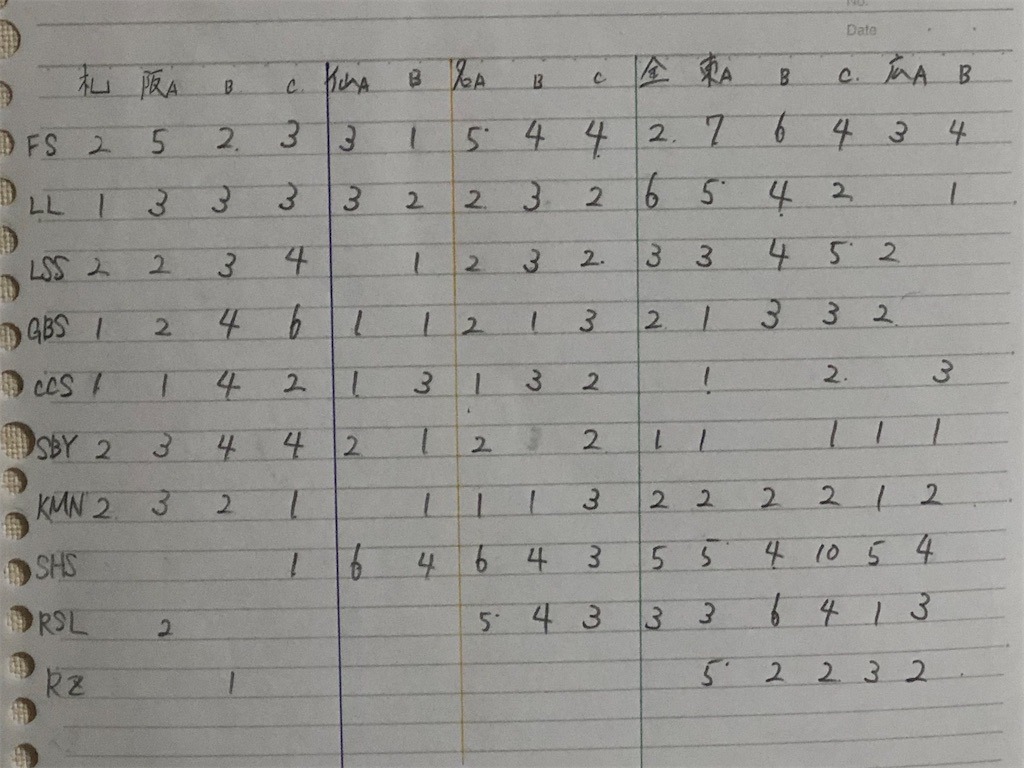 No.
Date
札 阪A B C. 仙A B 名A B C 金 東A B C. 広A B
FS 2 5 2. 3 3 1 5 4 4 2. 7 6 4 3 4
LL 1 3 3 3 3 2 2 3 2 6 5 4 2 1
LSS 2 2 3 4 1 2 3 2. 3 3 4 5 2
GBS 1 2 4 6 1 1 2 1 3 2 1 3 3 2
CCS 1 1 4 2 1 3 1 3 2 1 2. 3
SBY 2 3 4 4 2 1 2 2 1 1 1 1 1
KMN 2 3 2 1 1 1 1 3 2 2 2 2 1 2
SHS 1 6 4 6 4 3 5 5 4 10 5 4
RSL 2 5 4 3 3 3 6 4 1 3
RZ 1 5 2 2 3 2